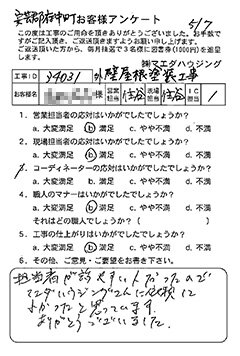 安芸郡府中町 お客様アンケート 5/7
この度は工事のご用命を頂きありがとうございました。お手数で
すがご記入頂き、ご返送頂きますようお願い申し上げます。
ご返送頂いた方から、毎月抽選で3名様に図書券(1000円)を進呈し
ております。
㈱マエダハウジング
工事ID 34031 外壁屋根塗装工事
お客様名 様 営業担当 住谷 現場担当 住谷 IC担当 /
1. 営業担当者の応対はいかがでしたでしょうか?
a. 大変満足 b. 満足 c. やや不満 d. 不満
2. 現場担当者の応対はいかがでしたでしょうか?
a. 大変満足 b. 満足 c. やや不満 d. 不満
3. コーディネーターの応対はいかがでしたでしょうか?
a. 大変満足 b. 満足 c. やや不満 d. 不満
4. 職人のマナーはいかがでしたでしょうか?
a. 大変満足 b. 満足 c. やや不満 d. 不満
それはどの職人でしょうか?( )
5. 工事の仕上がりはいかがでしたでしょうか?
a. 大変満足 b. 満足 c. やや不満 d. 不満
6. その他、ご意見・ご要望をお書き下さい。
担当者が話やすい人だったので
マエダハウジングさんに依頼して
よかったと思っています。
ありがとうございました。